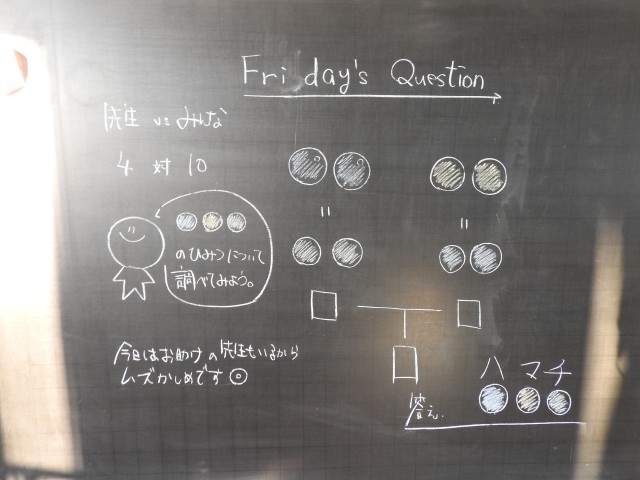 Friday's Question
先生 vs みんな
4 対 10
のひみつについて
調べてみよう。
今日はお助けの先生もいるから
ムズかしめです
ハマチ
答え.